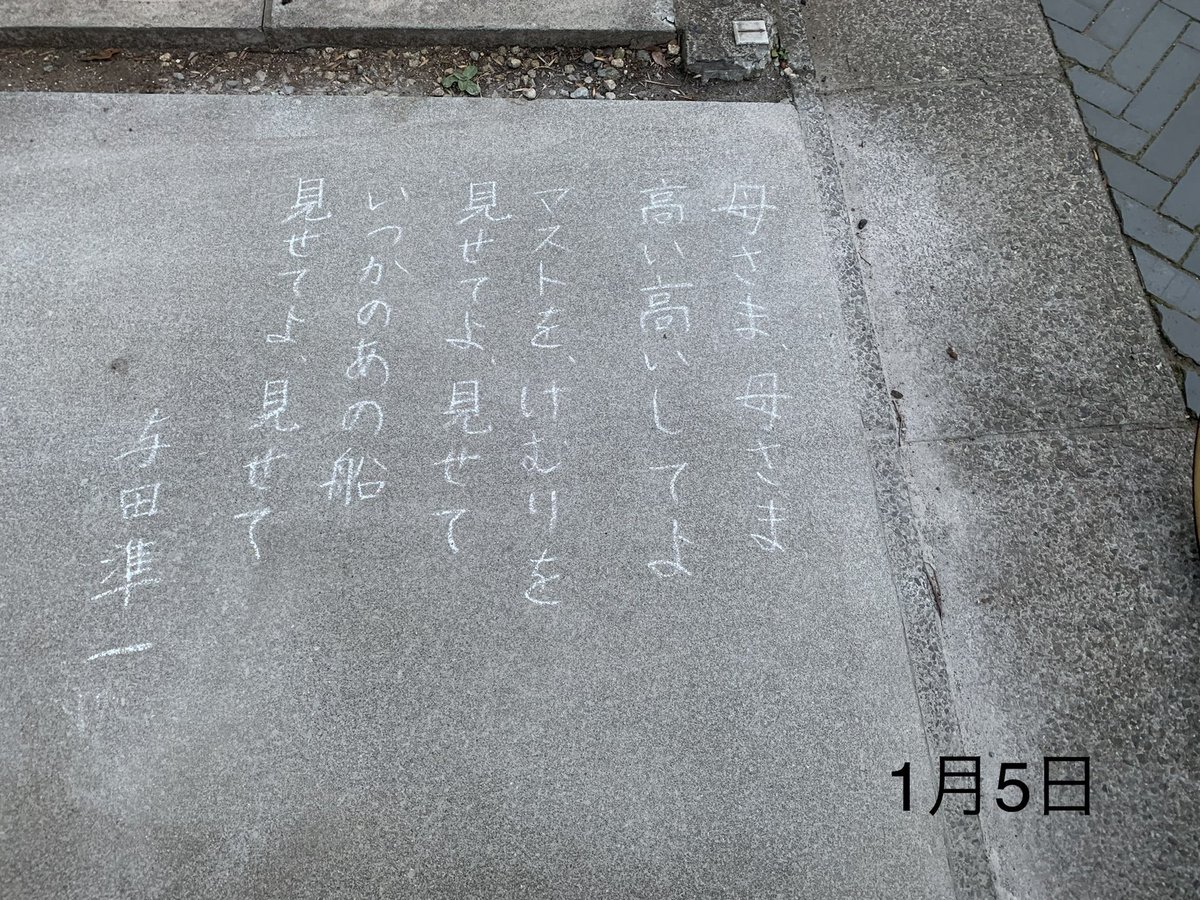 母さま、母さま
高い高いしてよ
マストを、けむりを
見せてよ、見せて
いつかのあの船
見せてよ、見せて
与田準一
1月5日